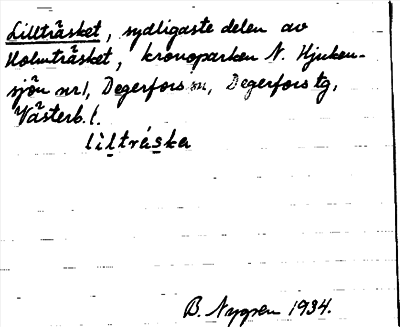 Lillträsket, sydligaste delen av
Holmträsket, kronoparken N. Hjuken-
sjön nr 1, Degerfors sn, Degerfors tg,
Västerb. l.
liltráska
B. Nygren 1934.